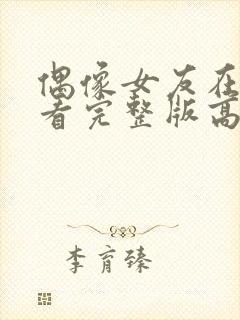 偶像女友在
看完整版高
李育臻